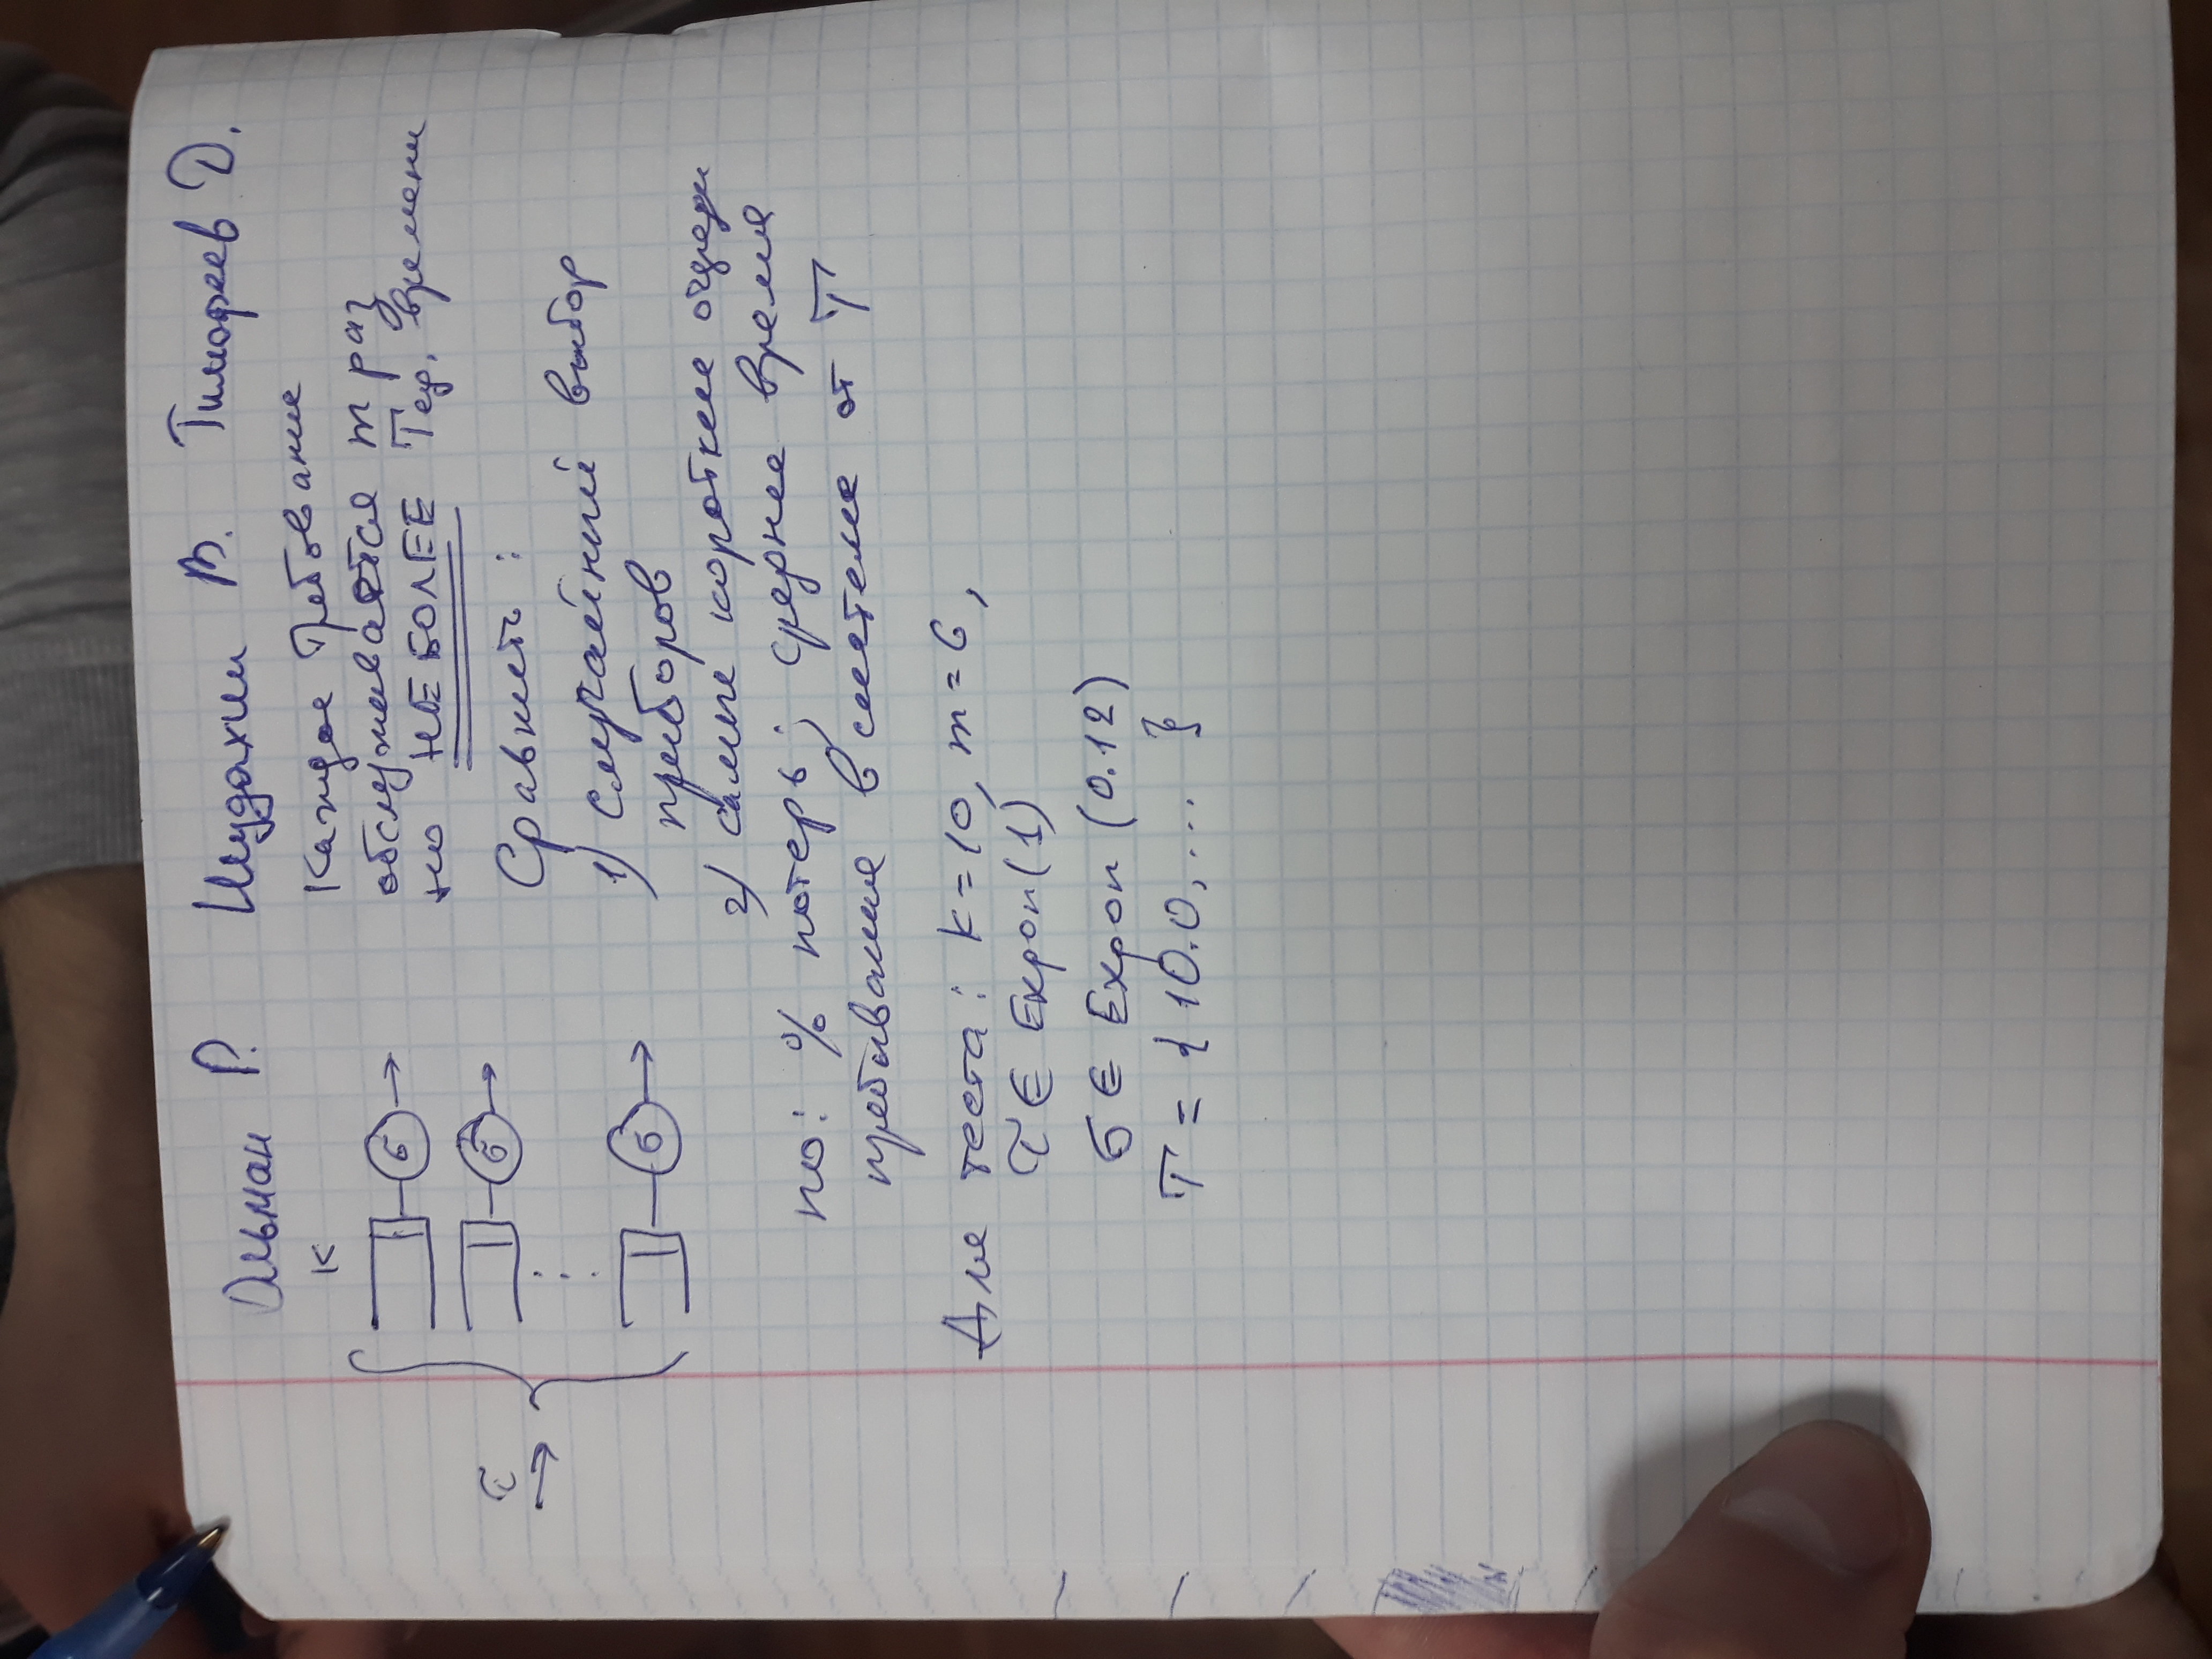 Ольман Р. Шудахин В. Тимофеев Д.
К
Каждое требование
обслуживается m раз
но НЕ БОЛЕЕ T ед. времени
σ
σ
σ
τ
Сравнить:
1) случайный выбор
приборов
2) самые короткие очереди
по: % потерь; среднее время
пребывания в системе от T
Для теста: k=10, m=6,
τ ∈ Expon(1)
σ ∈ Expon (0.12)
T = { 10.0, ... }